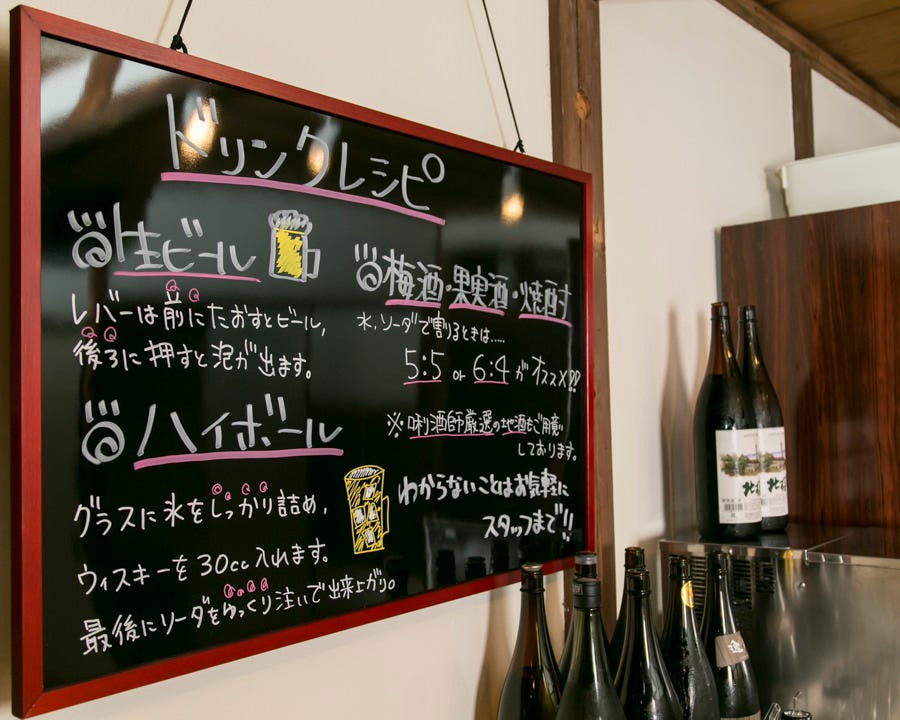 ドリンクレシピ
生ビール
レバーは前にたおすとビール,
後ろに押すと泡が出ます。
ハイボール
グラスに氷をしっかり詰め,
ウィスキーを30cc入れます。
最後にソーダをゆっくり注いで出来上がり。
梅酒・果実酒・焼酎
水,ソーダで割るときは……
5:5 or 6:4 が オススメ!!
※唎酒師厳選の地酒もご用意
しております。
わからないことはお気軽に
スタッフまで!!